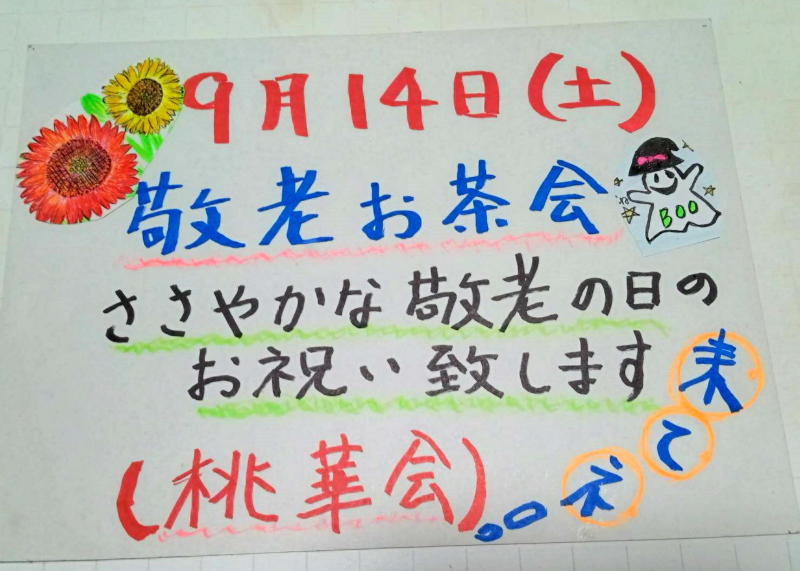 9月14日(土)
敬老お茶会
BOO
ささやかな敬老の日の
お祝い致します
来てネ
(桃華会)